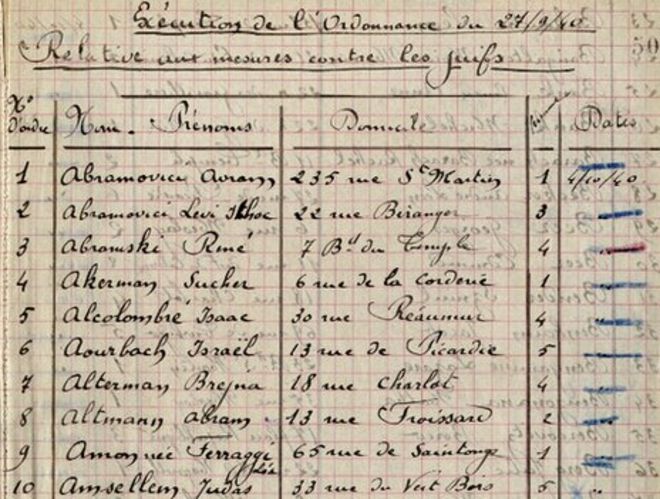 Exécution de l'Ordonnance du 27/9/40
Relative aux mesures contre les juifs
50
N° d'ordre Nom - Prénoms Domicile Dates
1 Abramovici Avram 235 rue St Martin 1 4/10/40
2 Abramovici Levi 22 rue Béranger 3 "
3 Abramski René 7 Bd du Temple 4 "
4 Akerman Sucher 6 rue de la Corderie 1 "
5 Alcolombré Isaac 30 rue Réaumur 4 "
6 Aourbach Israël 13 rue de Picardie 5 "
7 Alterman Brejna 18 rue Charlot 4 "
8 Altmann Abram 13 rue Froissard 2 "
9 Amon née Ferraggi 65 rue de Saintonge 1 "
10 Amsellem Judas 33 rue du Vert Bois 5 "